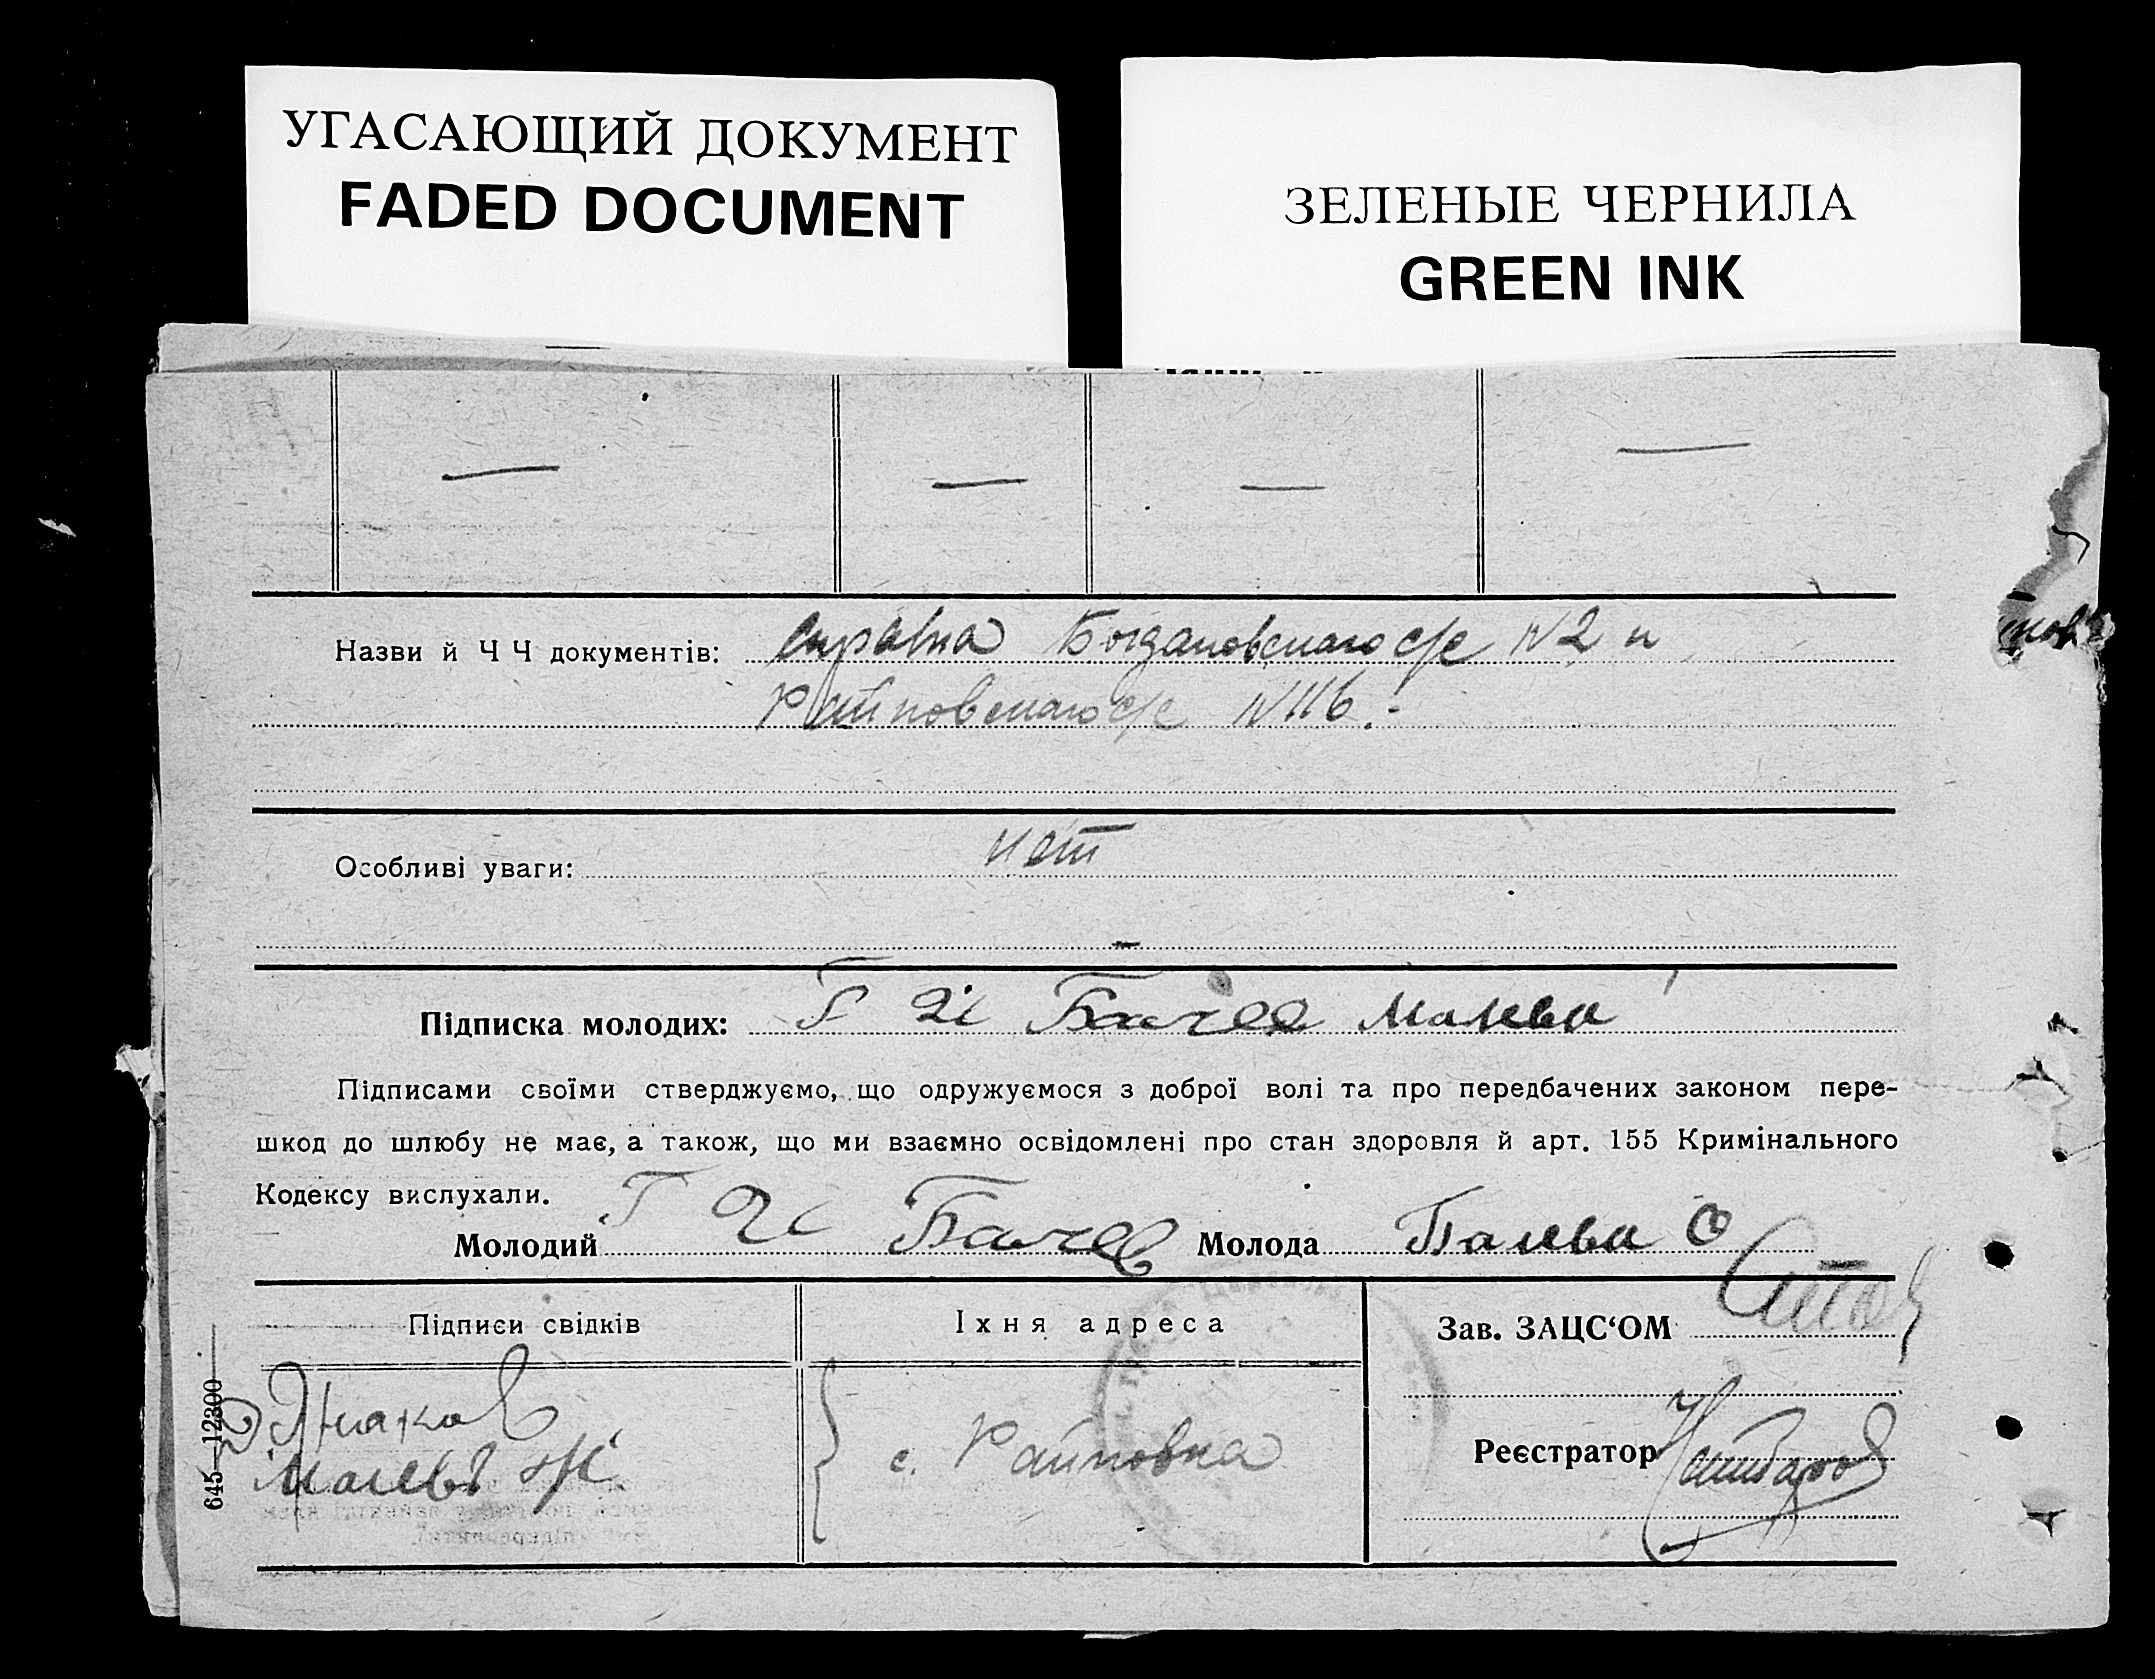 УГАСАЮЩИЙ ДОКУМЕНТ
FADED DOCUMENT
ЗЕЛЕНЫЕ ЧЕРНИЛА
GREEN INK
Назви й Ч Ч документів: справка Богдановского с/с N2 и
Райновского с/с N116.-
Особливі уваги: нет
Підписка молодих: Г И Бачев
Підписами своїми стверджуємо, що одружуємося з доброї волі та про передбачених законом пере-
шкод до шлюбу не має, а також, що ми взаємно освідомлені про стан здоровля й арт. 155 Кримінального
Кодексу вислухали.
Молодий Г И Бачев Молода
Підписи свідків Їхня адреса Зав. ЗАЦС‘ОМ
с. Райновка
Реєстратор
645—12300